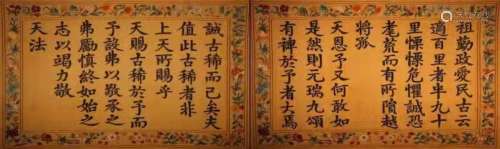 祖勤政愛民古云
適百里者半九十
里慄慄危懼誠恐
耄荒而有所隕越
將孤
天恩予又何敢如
是然則元瑞九頌
有裨於予者大焉
誠古稀而已矣夫
值此古稀者非
上天所賜乎
天賜古稀於予而
予設弗以敬承之
弗勵慎終如始之
志以竭力敬
天法